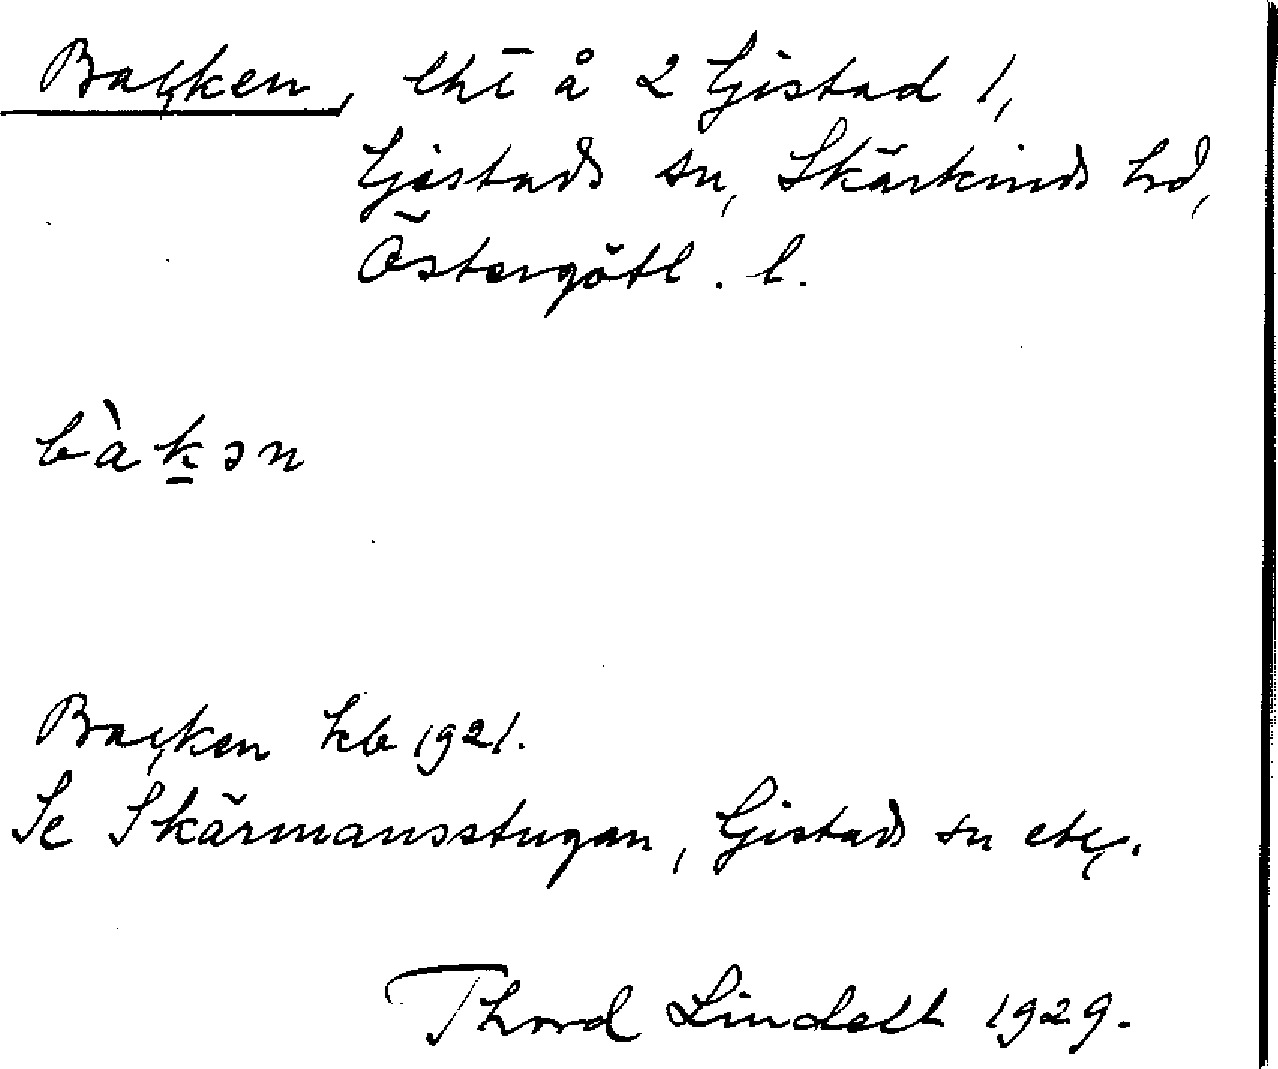 Backen, lht å 2 Gistad 1,
Gistads sn, Skärkinds hd,
Östergötl. l.
bàk̲ən
Backen kb 1921.
Se Skärmansstugan, Gistads sn etc.
Thord Lindell 1929.